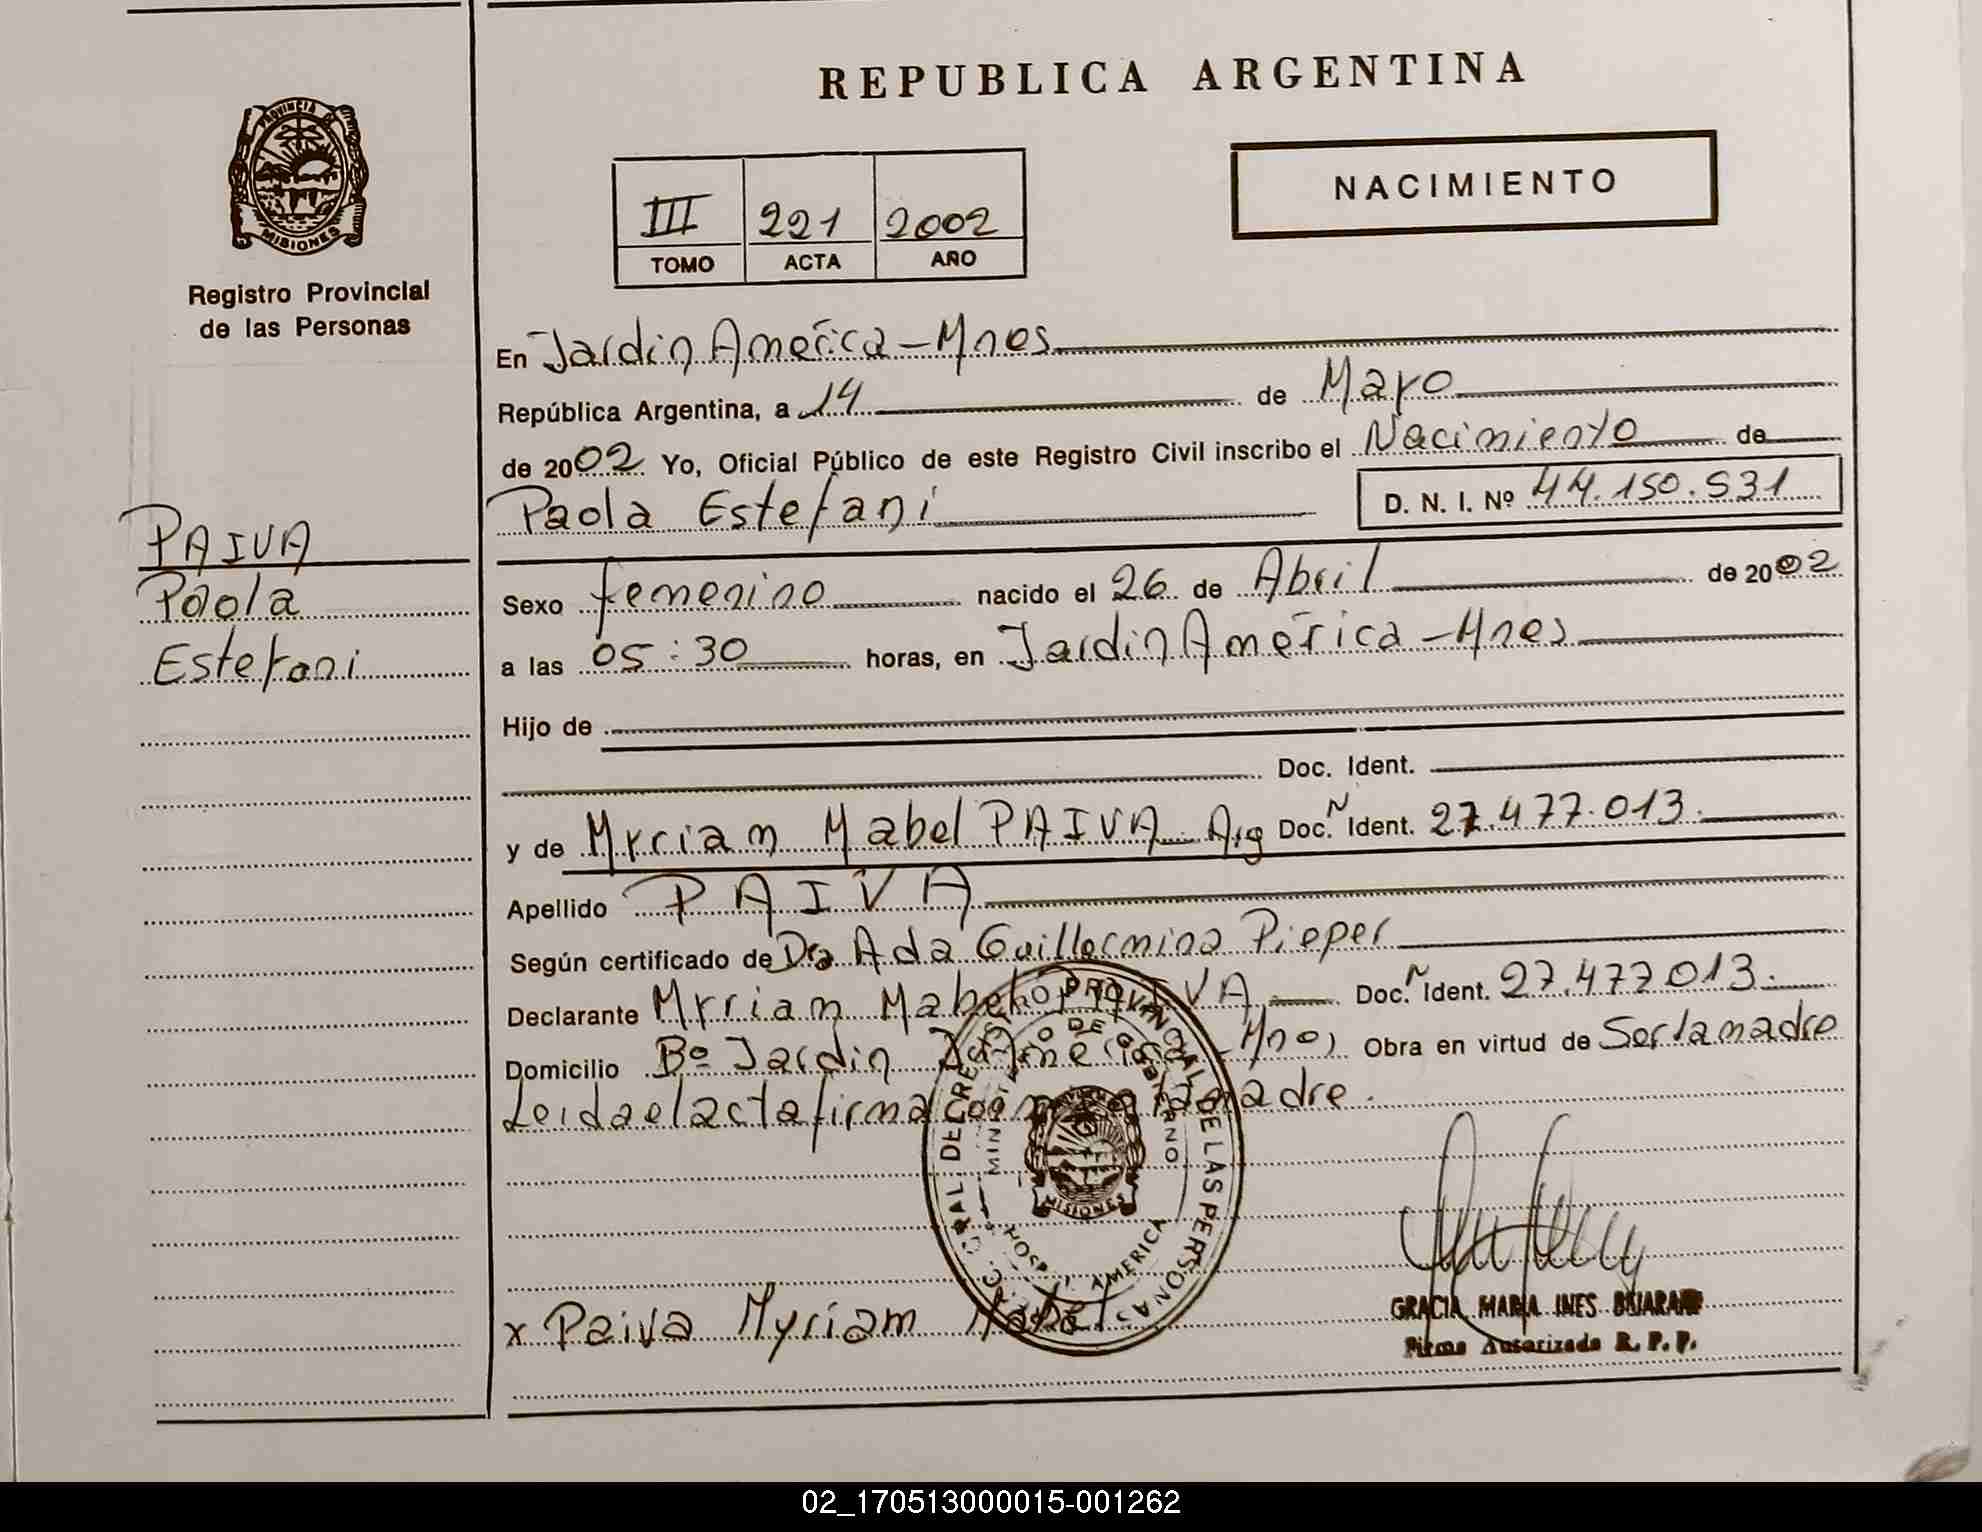 REPUBLICA ARGENTINA
PROVINCIA DE
MISIONES
Registro Provincial
de las Personas
NACIMIENTO
III 221 2002
TOMO ACTA AÑO
En Jardin América - Mnes
República Argentina, a 14 de Mayo
de 2002 Yo, Oficial Público de este Registro Civil inscribo el Nacimiento de
Paola Estefani D. N. I. Nº 44.150.531
PAIVA
Paola
Estefani
Sexo femenino nacido el 26 de Abril de 2002
a las 05:30 horas, en Jardin América - Mnes
Hijo de
Doc. Ident.
y de Myriam Mabel PAIVA Arg Doc. N Ident. 27.477.013.
Apellido PAIVA
Según certificado de Dra Ada Guillermina Pieper
Declarante Myriam Mabel PAIVA Doc. N Ident. 27.477.013.
Domicilio Bº Jardin América - Mnes Obra en virtud de Ser la madre
Leida el acta firma la madre.
x Paiva Myriam Mabel
PROVINCIAL DE LAS PERSONAS
MINISTERIO DE GOBIERNO
HOSP. AMERICA
MISIONES
GRACIA MARIA INES
Firma Autorizada R. P. P.
02_170513000015-001262